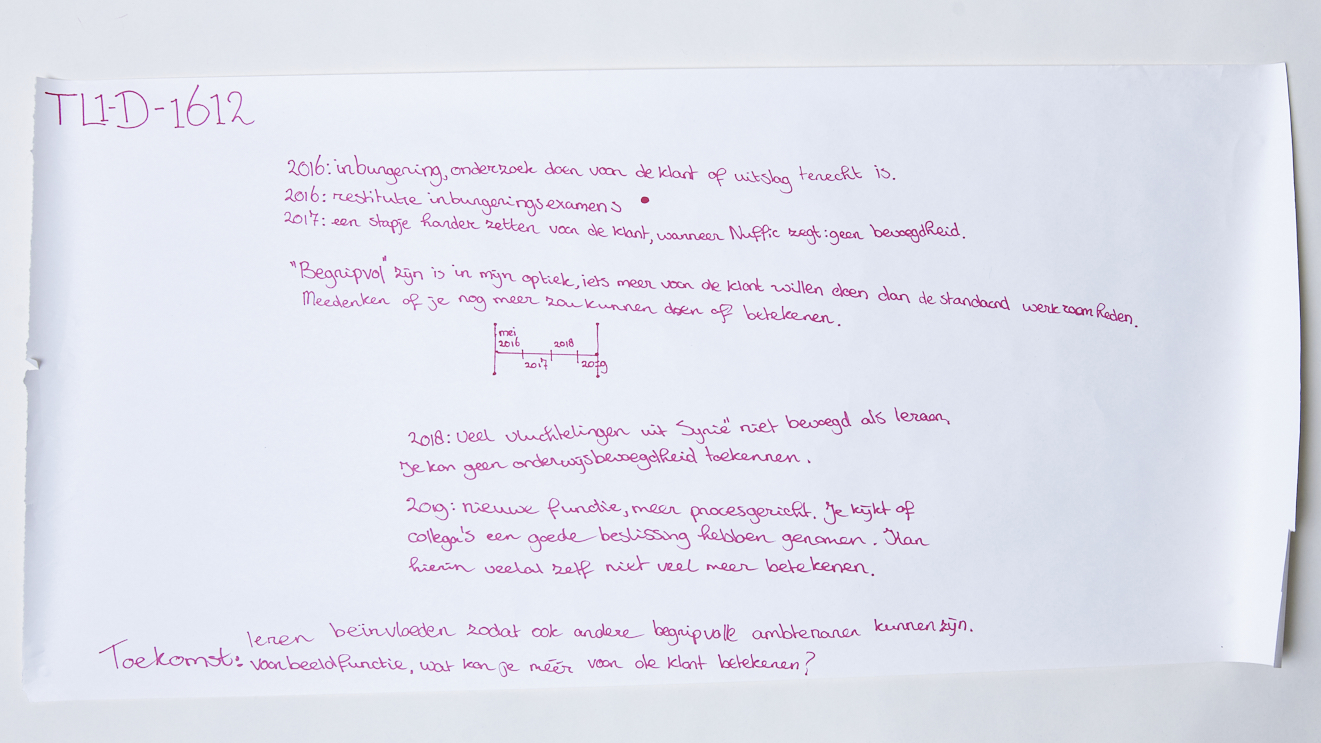 TL1-D-1612
2016: inburgering, onderzoek doen voor de klant of uitslag terecht is.
2016: restitutie inburgeringsexamens
2017: een stapje harder zetten voor de klant, wanneer Nuffic zegt: geen bevoegdheid.
"Begripvol" zijn is in mijn optiek, iets meer voor de klant willen doen dan de standaard werkzaamheden.
Meedenken of je nog meer zou kunnen doen of betekenen.
mei
2016 2018
2017 2019
2018: veel vluchtelingen uit Syrië niet bevoegd als leraar,
Je kan geen onderwijsbevoegdheid toekennen.
2019: nieuwe functie, meer procesgericht. Je kijkt of
collega's een goede beslissing hebben genomen. Kan
hierin veelal zelf niet veel meer betekenen.
leren beïnvloeden zodat ook andere begripvolle ambtenaren kunnen zijn.
Toekomst: voorbeeldfunctie, wat kan je méér voor de klant betekenen?